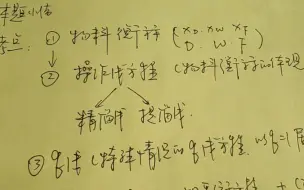 本题小结
考点: ① 物料衡算 (xD xW xF
D. W F)
② 操作线方程 (物料衡算的体现
精馏线 提馏线.
③ q线 (特殊情况的q线方程. 如q=1